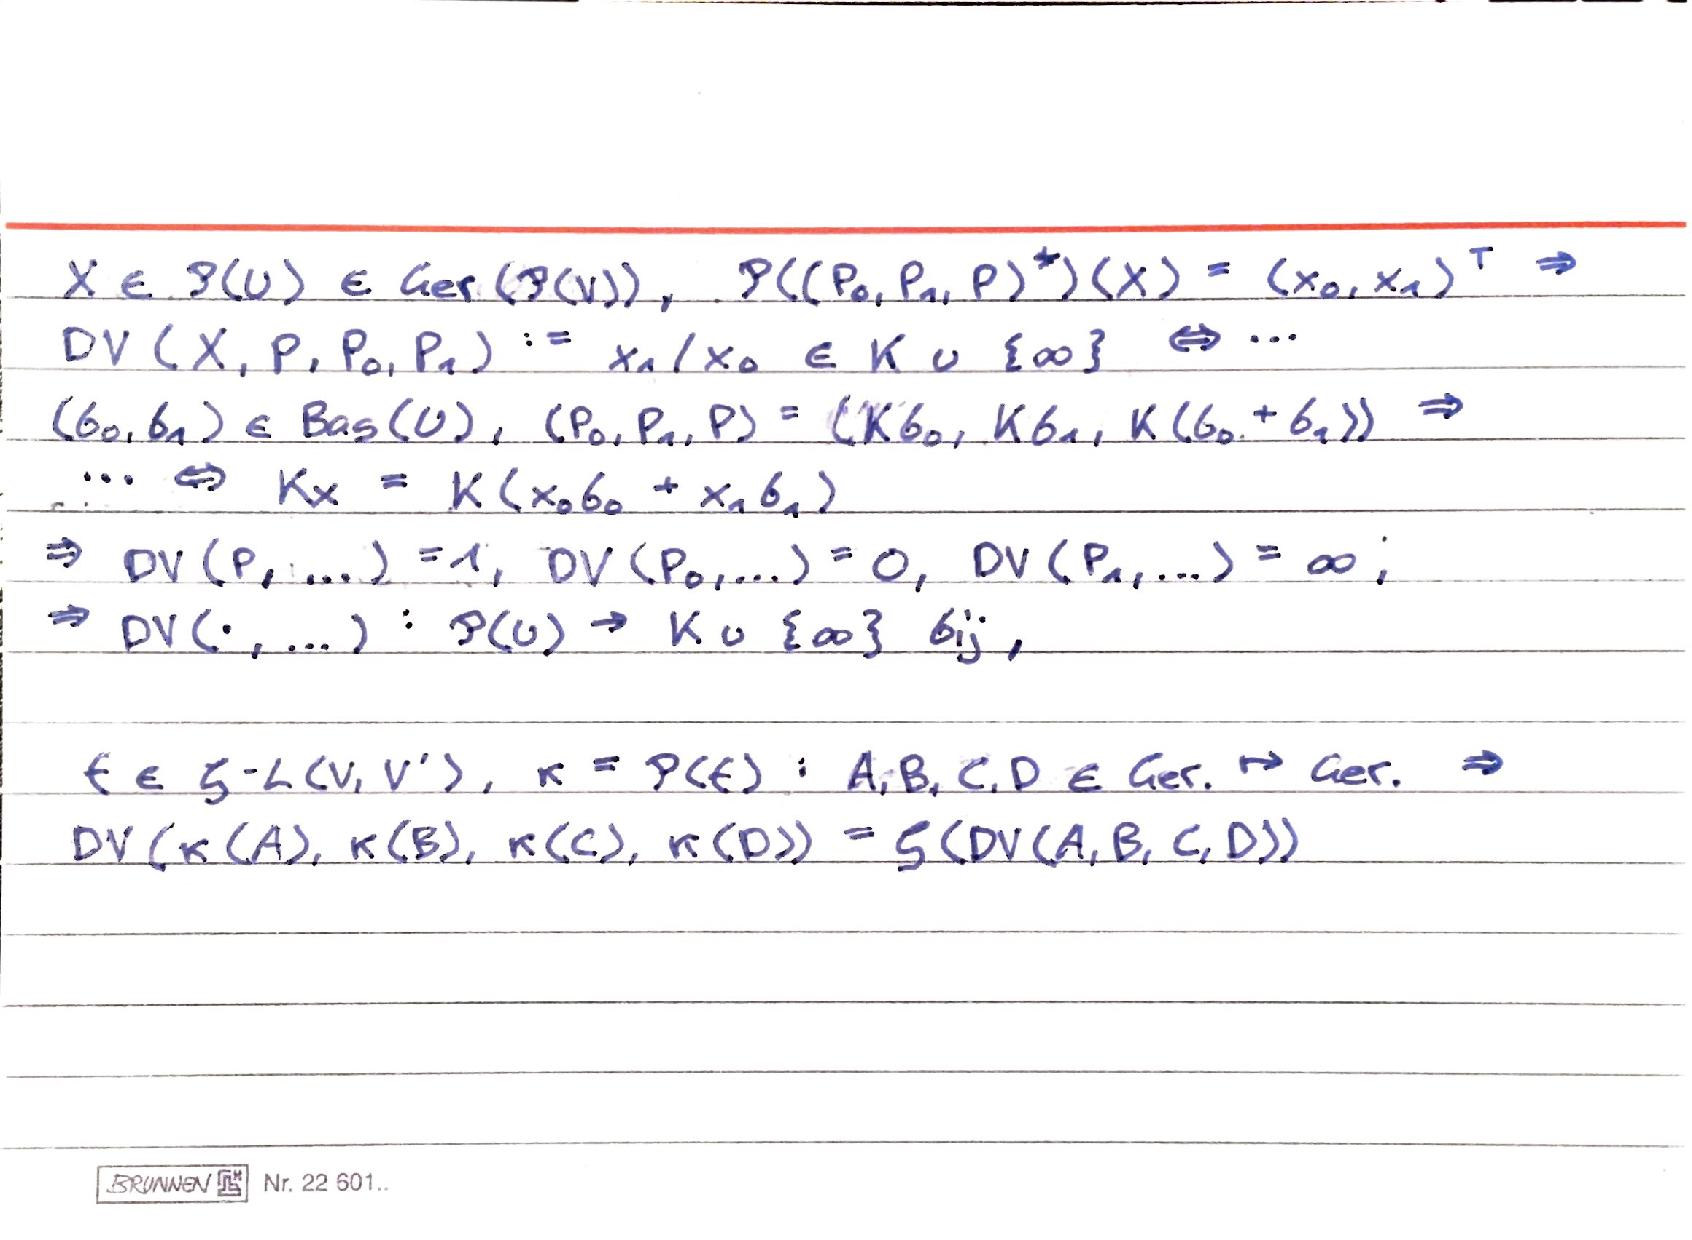 X ∈ 𝒫(U) ∈ Ger(𝒫(V)), 𝒫((P₀, P₁, P)*)(X) = (x₀, x₁)ᵀ ⇒
DV(X, P, P₀, P₁) := x₁/x₀ ∈ K ∪ {∞} ⇔ ...
(b₀, b₁) ∈ Bas(U), (P₀, P₁, P) = (Kb₀, Kb₁, K(b₀ + b₁)) ⇒
... ⇔ Kx = K(x₀b₀ + x₁b₁)
⇒ DV(P, ...) = 1, DV(P₀, ...) = 0, DV(P₁, ...) = ∞;
⇒ DV(·, ...) : 𝒫(U) → K ∪ {∞} bij,
f ∈ ζ-L(V, V'), κ = 𝒫(f) : A, B, C, D ∈ Ger. ↦ Ger. ⇒
DV(κ(A), κ(B), κ(C), κ(D)) = ζ(DV(A, B, C, D))
BRUNNEN Nr. 22 601..